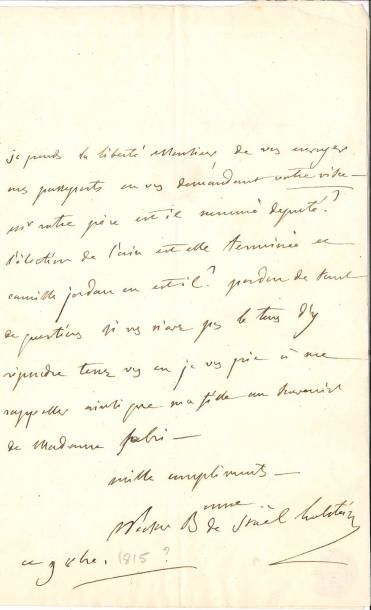 je prends la liberté Monsieur de vous envoyer
mes passeports en vous demandant votre visa —
mr votre père est il nommé député ?
l'élection de l'ain est elle terminée et
camille jordan en est il ? pardon de tant
de questions si vous n'avez pas le tems d'y
répondre tenez vous en je vous prie à me
rappeller ainsi que ma fille au souvenir
de Madame fabri —
mille compliments —
Necker Bonne de Staël holstein
ce 9 1815 ?